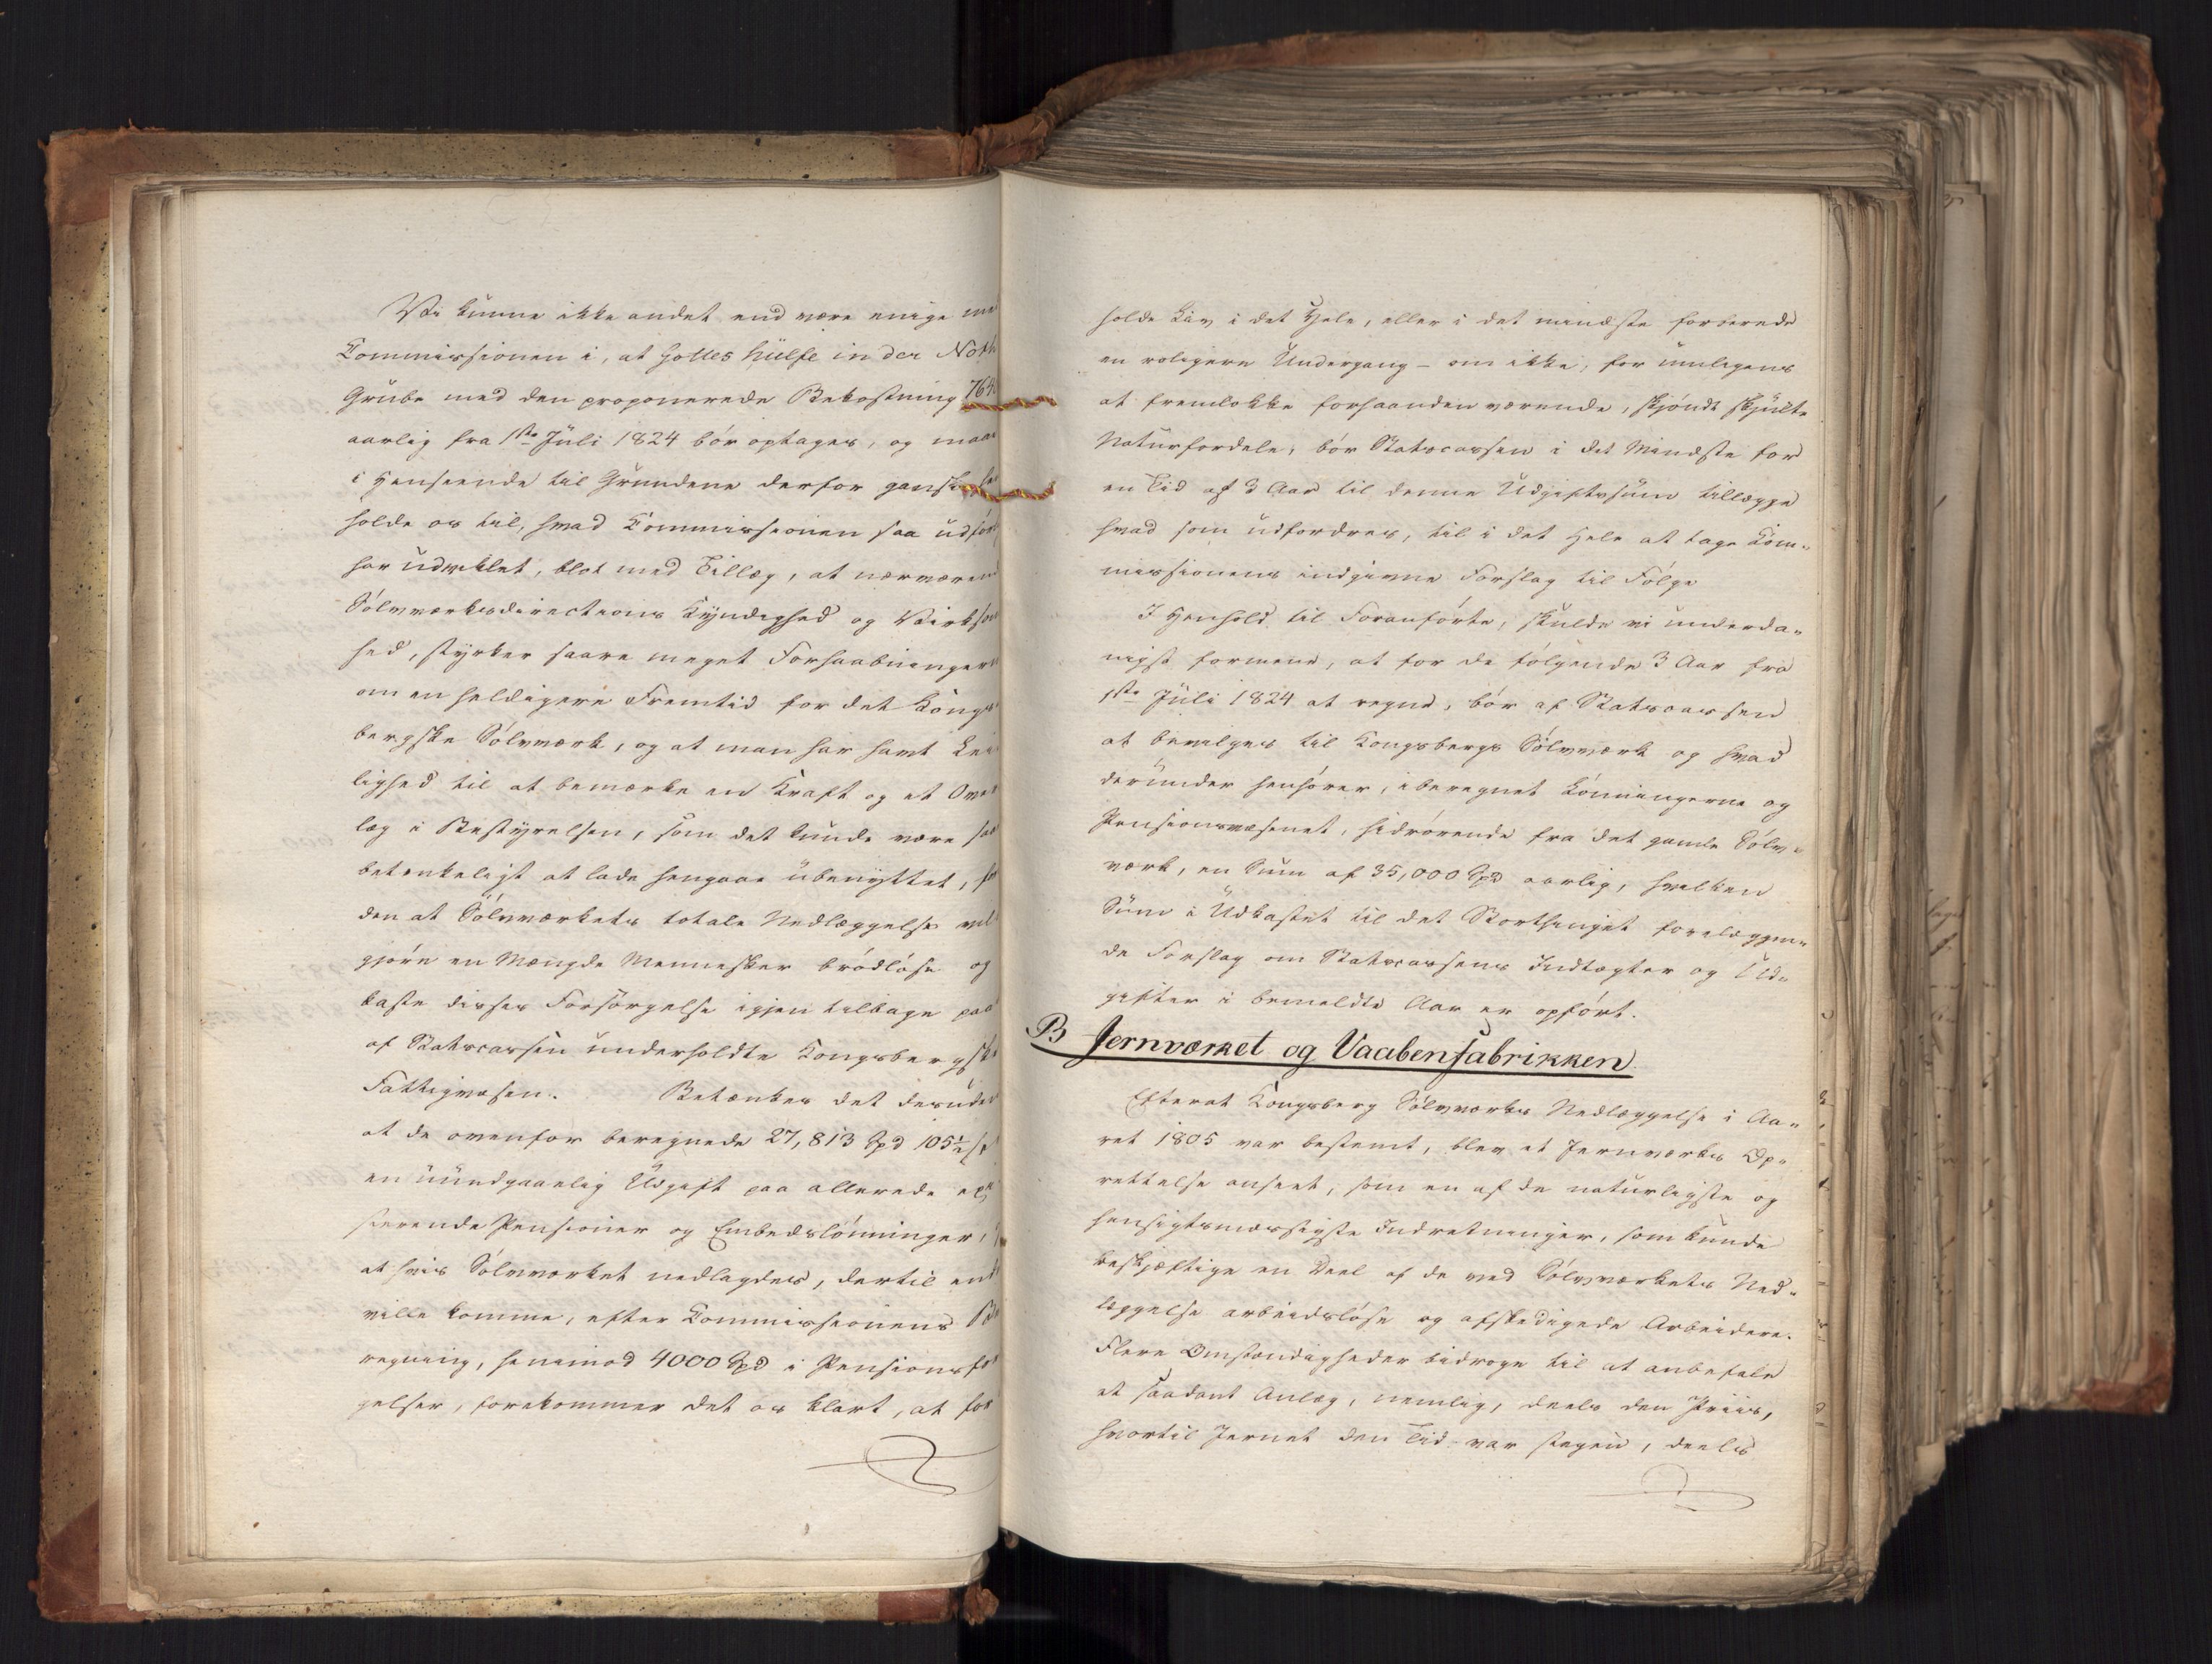 Vi kunne ikke andet end være enige
Commissionen i, at Gottes Hülfe in der Noth
Grube med den proponerede Bekostning
aarlig fra 1ste Juli 1824 bör optages, og maae
i Henseende til Grundene derfor
holde os til, hvad Commissionen saa
har udviklet, blot med Tillæg, at
Sölvværksdirections Kyndighed og
hed, styrker saare meget
om en heldigere Fremtid for det Kongs
bergske Sölvværk, og at man har havt Lei
lighed til at bemærke en Kraft og et Over
læg i Bestyrelsen, som det kunde være
betænkeligt at lade hengaae ubenyttet,
den at Sölvværkets totale Nedlæggelse
gjöre en Mængde Mennesker brödlöse og
kaste disses Forsörgelse igjen tilbage paa
af Statscassen underholdte Kongsbergske
Fattigvæsen. Betænkes det desuden
at de ovenfor beregnede 27,813 Spd 105½
en uundgaaelig Udgift paa allerede
sterende Pensioner og Embedslönninger,
at hvis Sölvværket nedlagdes, dertil
ville komme, efter Commissionens Be
regning, henimod 4000 Spd i
gelser, forekommer det os klart, at for
holde Liv i det Hele, eller i det mindste forberede
en roligere Undergang – om ikke, for muligens
at fremlokke forhaanden værende, skjöndt skjulte
Naturfordele, bör Statscassen i det Mindste for
en Tid af 3 Aar til denne Udgiftssum tillægge
hvad som udfordres, til i det Hele at tage Com-
missionens indgivne Forslag til Fölge
I Henhold til Foranförte, skulde vi underda-
nigst formene, at for de fölgende 3 Aar fra
1ste Juli 1824 at regne, bör af Statscassen
at bevilges til Kongsbergs Sölvværk og hvad
derunder henhörer, iberegnet Lönningerne og
Pensionsvæsenet, hidrörende fra det gamle Sölv-
værk, en Sum af 35,000 Spd aarlig, hvilken
Sum i Udkastet til det Storthinget forelæggen-
de Forslag om Statscassens Indtægter og Ud-
gifter i bemeldte Aar er opfört.
B Jernværket og Vaabenfabrikken
Efterat Kongsberg Sölvværks Nedlæggelse i Aa-
ret 1805 var bestemt, blev et Jernværks Op-
rettelse anseet, som en af de naturligste og
hensigtsmæssigste Indretninger, som kunde
beskjæftige en Deel af de ved Sölvværkets Ned-
læggelse arbeidslöse og afskedigede Arbeidere.
Flere Omstændigheder bidroge til at anbefale
et saadant Anlæg, nemlig, deels den Priis,
hvortil Jernet den Tid var stegen, deels